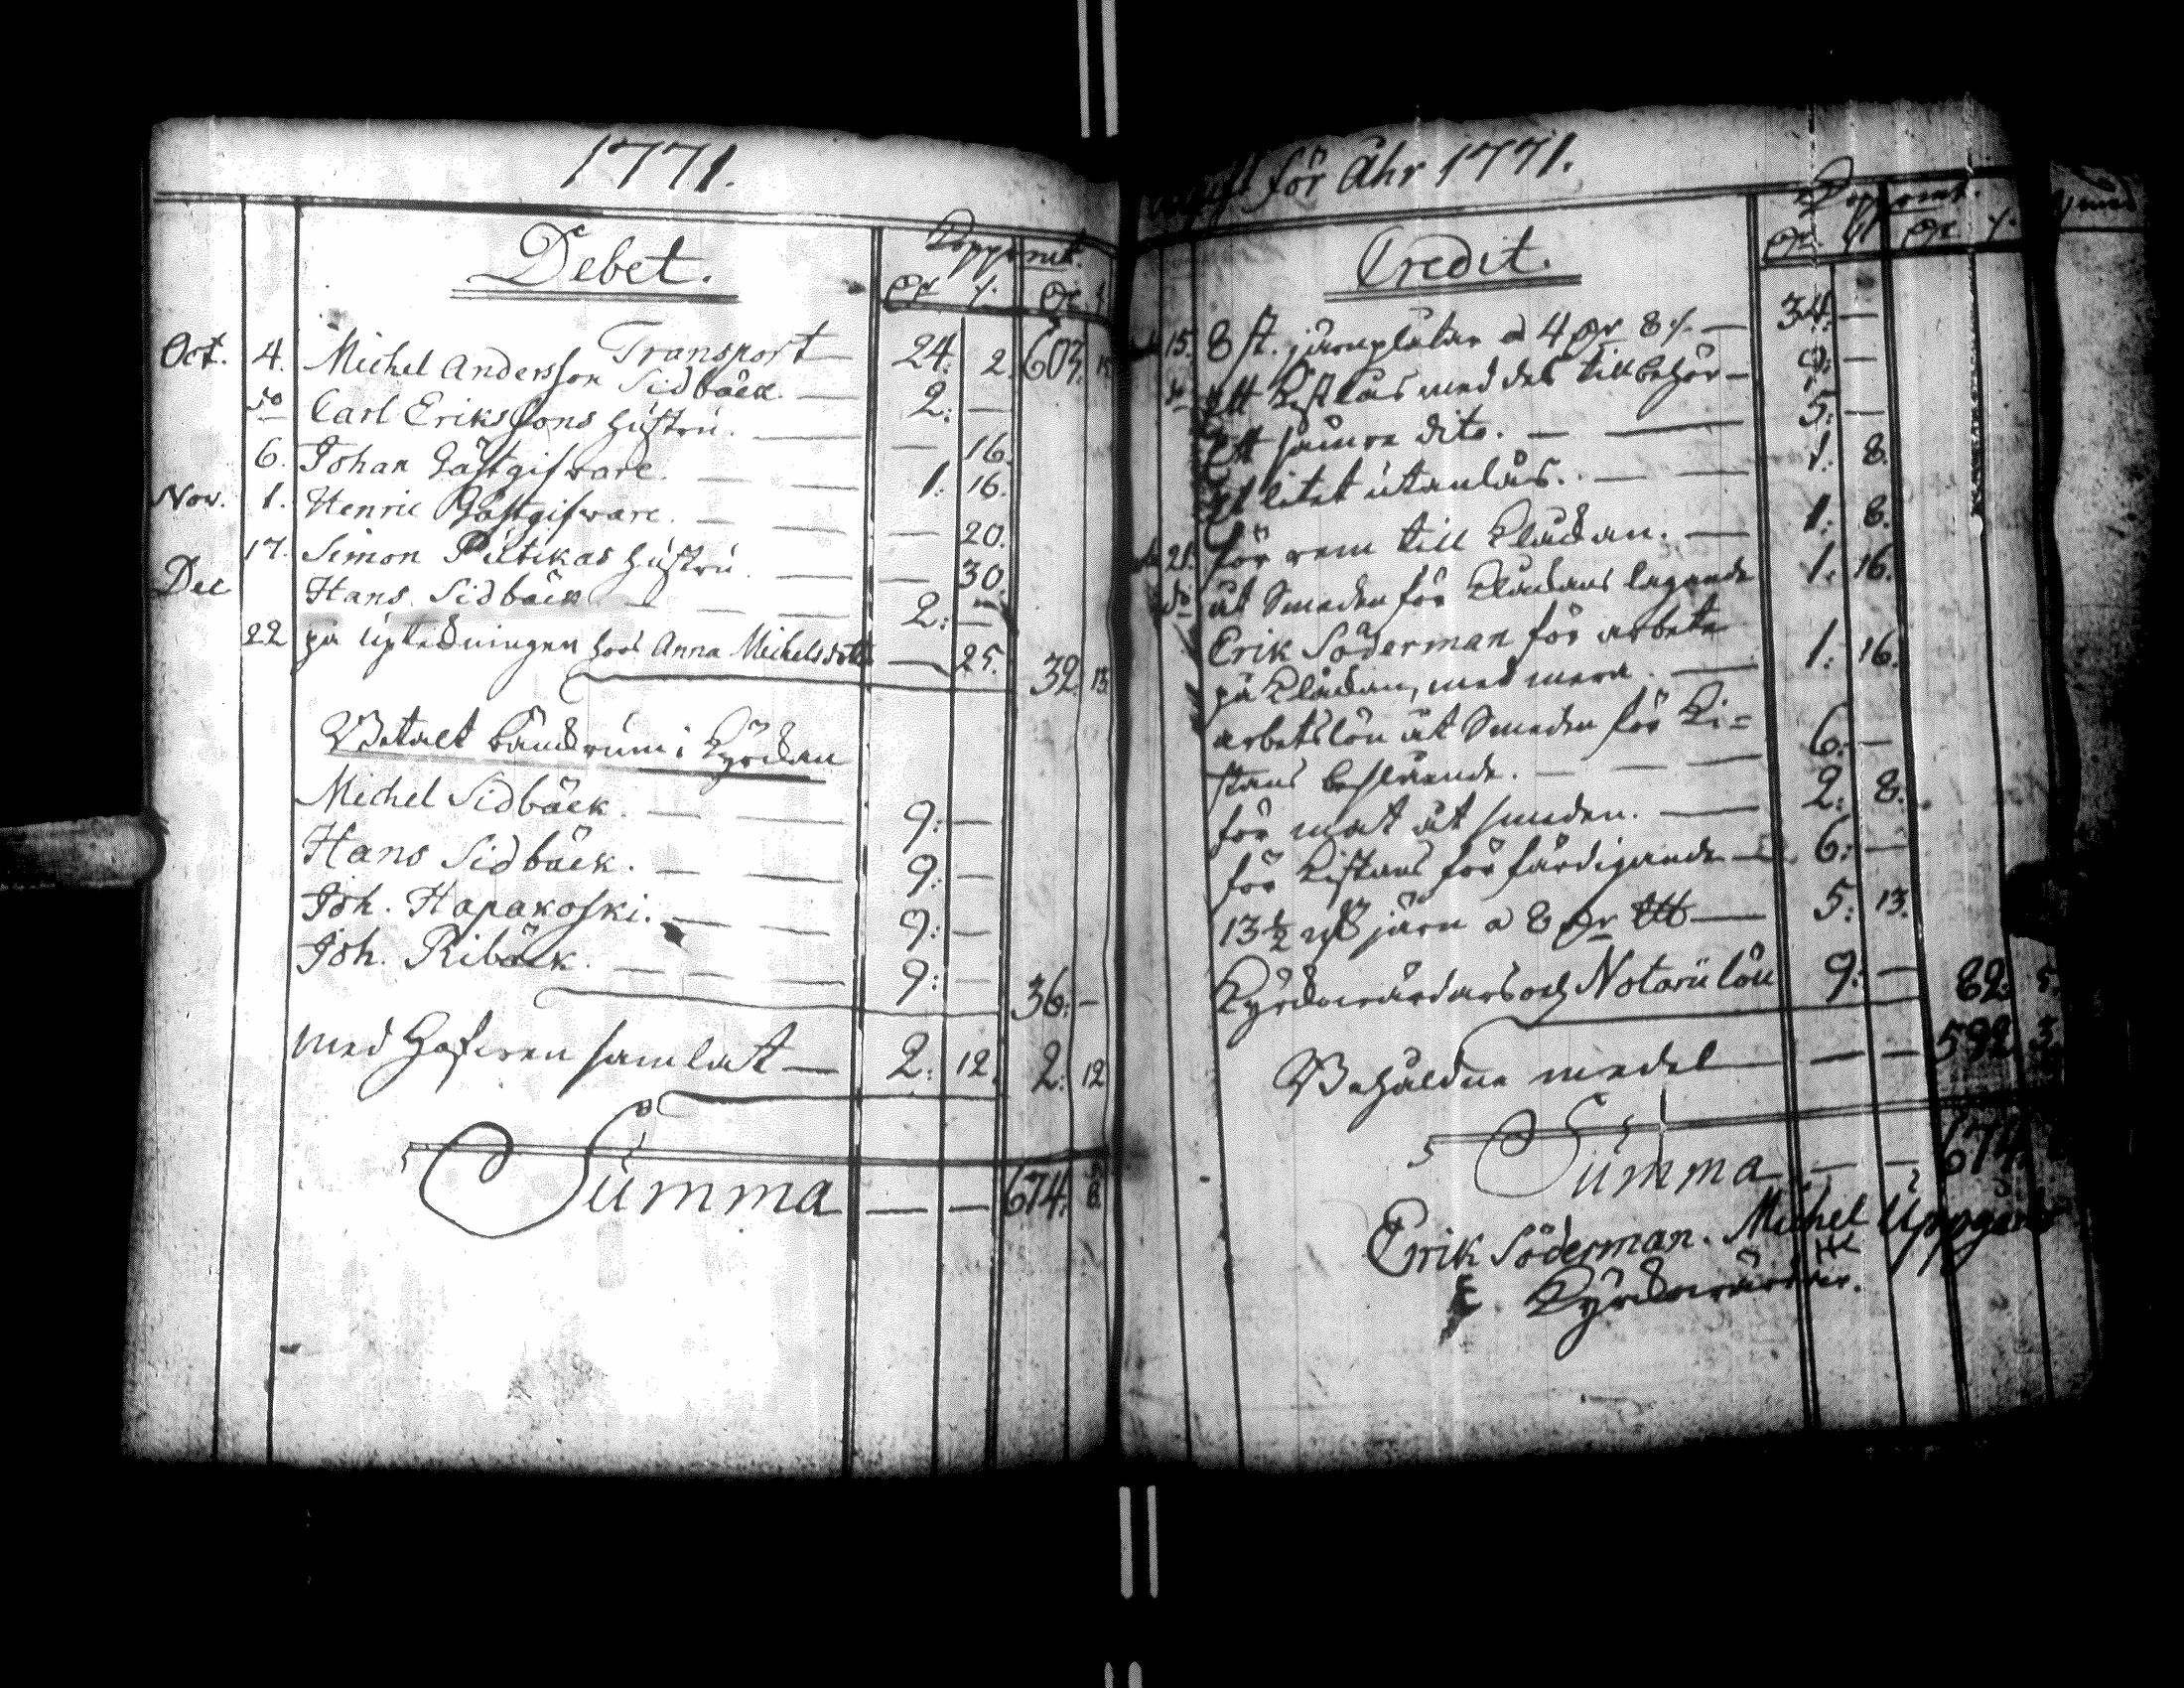 1771.
Debet.
Koppmt.
Transport 24. 2. 603. 15
Oct. 4. Michel Andersson Sidbäck. — 2: —
do Carl Erikssons hustru. — — 16.
6. Johan Gästgifware. — — 1: 16.
Nov. 1. Henric Gästgifware. — — — 20.
17. Simon Puttikas hustru. — — 30.
Dec Hans Sidbäck — — 2: —
22 på upteckningen hos Anna Michelsdotter — 25. 32. 13.
Betalt bänckrum i Kyrckan
Michel Sidbäck. — — 9: —
Hans Sidbäck. — — 9: —
Joh. Hapakoski. — — 9: —
Joh. Ribäck. — — 9: — 36: —
med Hafwen samlat — 2: 12. 2: 12
Summa — — 674: 8
för Åhr 1771.
Credit.
Koppmt.
15. 8 st. järnplåtar a 4 — 34: —
do Ett Kistlås med des tillbehör — 9: —
Ett sämre dito. — — 5: —
Et litet utanlås. — — 1: 8.
21. för rem till Kläckan. — 1: 8.
do åt Smeden för Kläckans lagande 1: 16.
Erik Söderman för arbete
på Kläckan, med mera. — 1: 16.
arbetslön åt Smeden för Ki=
stans beslående. — — 6: —
för mat åt smeden. — 2: 8.
för Kistans förfärdigande — 6: —
13 1/2 järn a 8 — 5: 13.
Kyrckowärdars och Notarii lön 9: — 82: 5.
Behåldne medel — — 592 3
Summa — — 674.
Erik Söderman. Michel Uppgård
Kyrckowärdar.